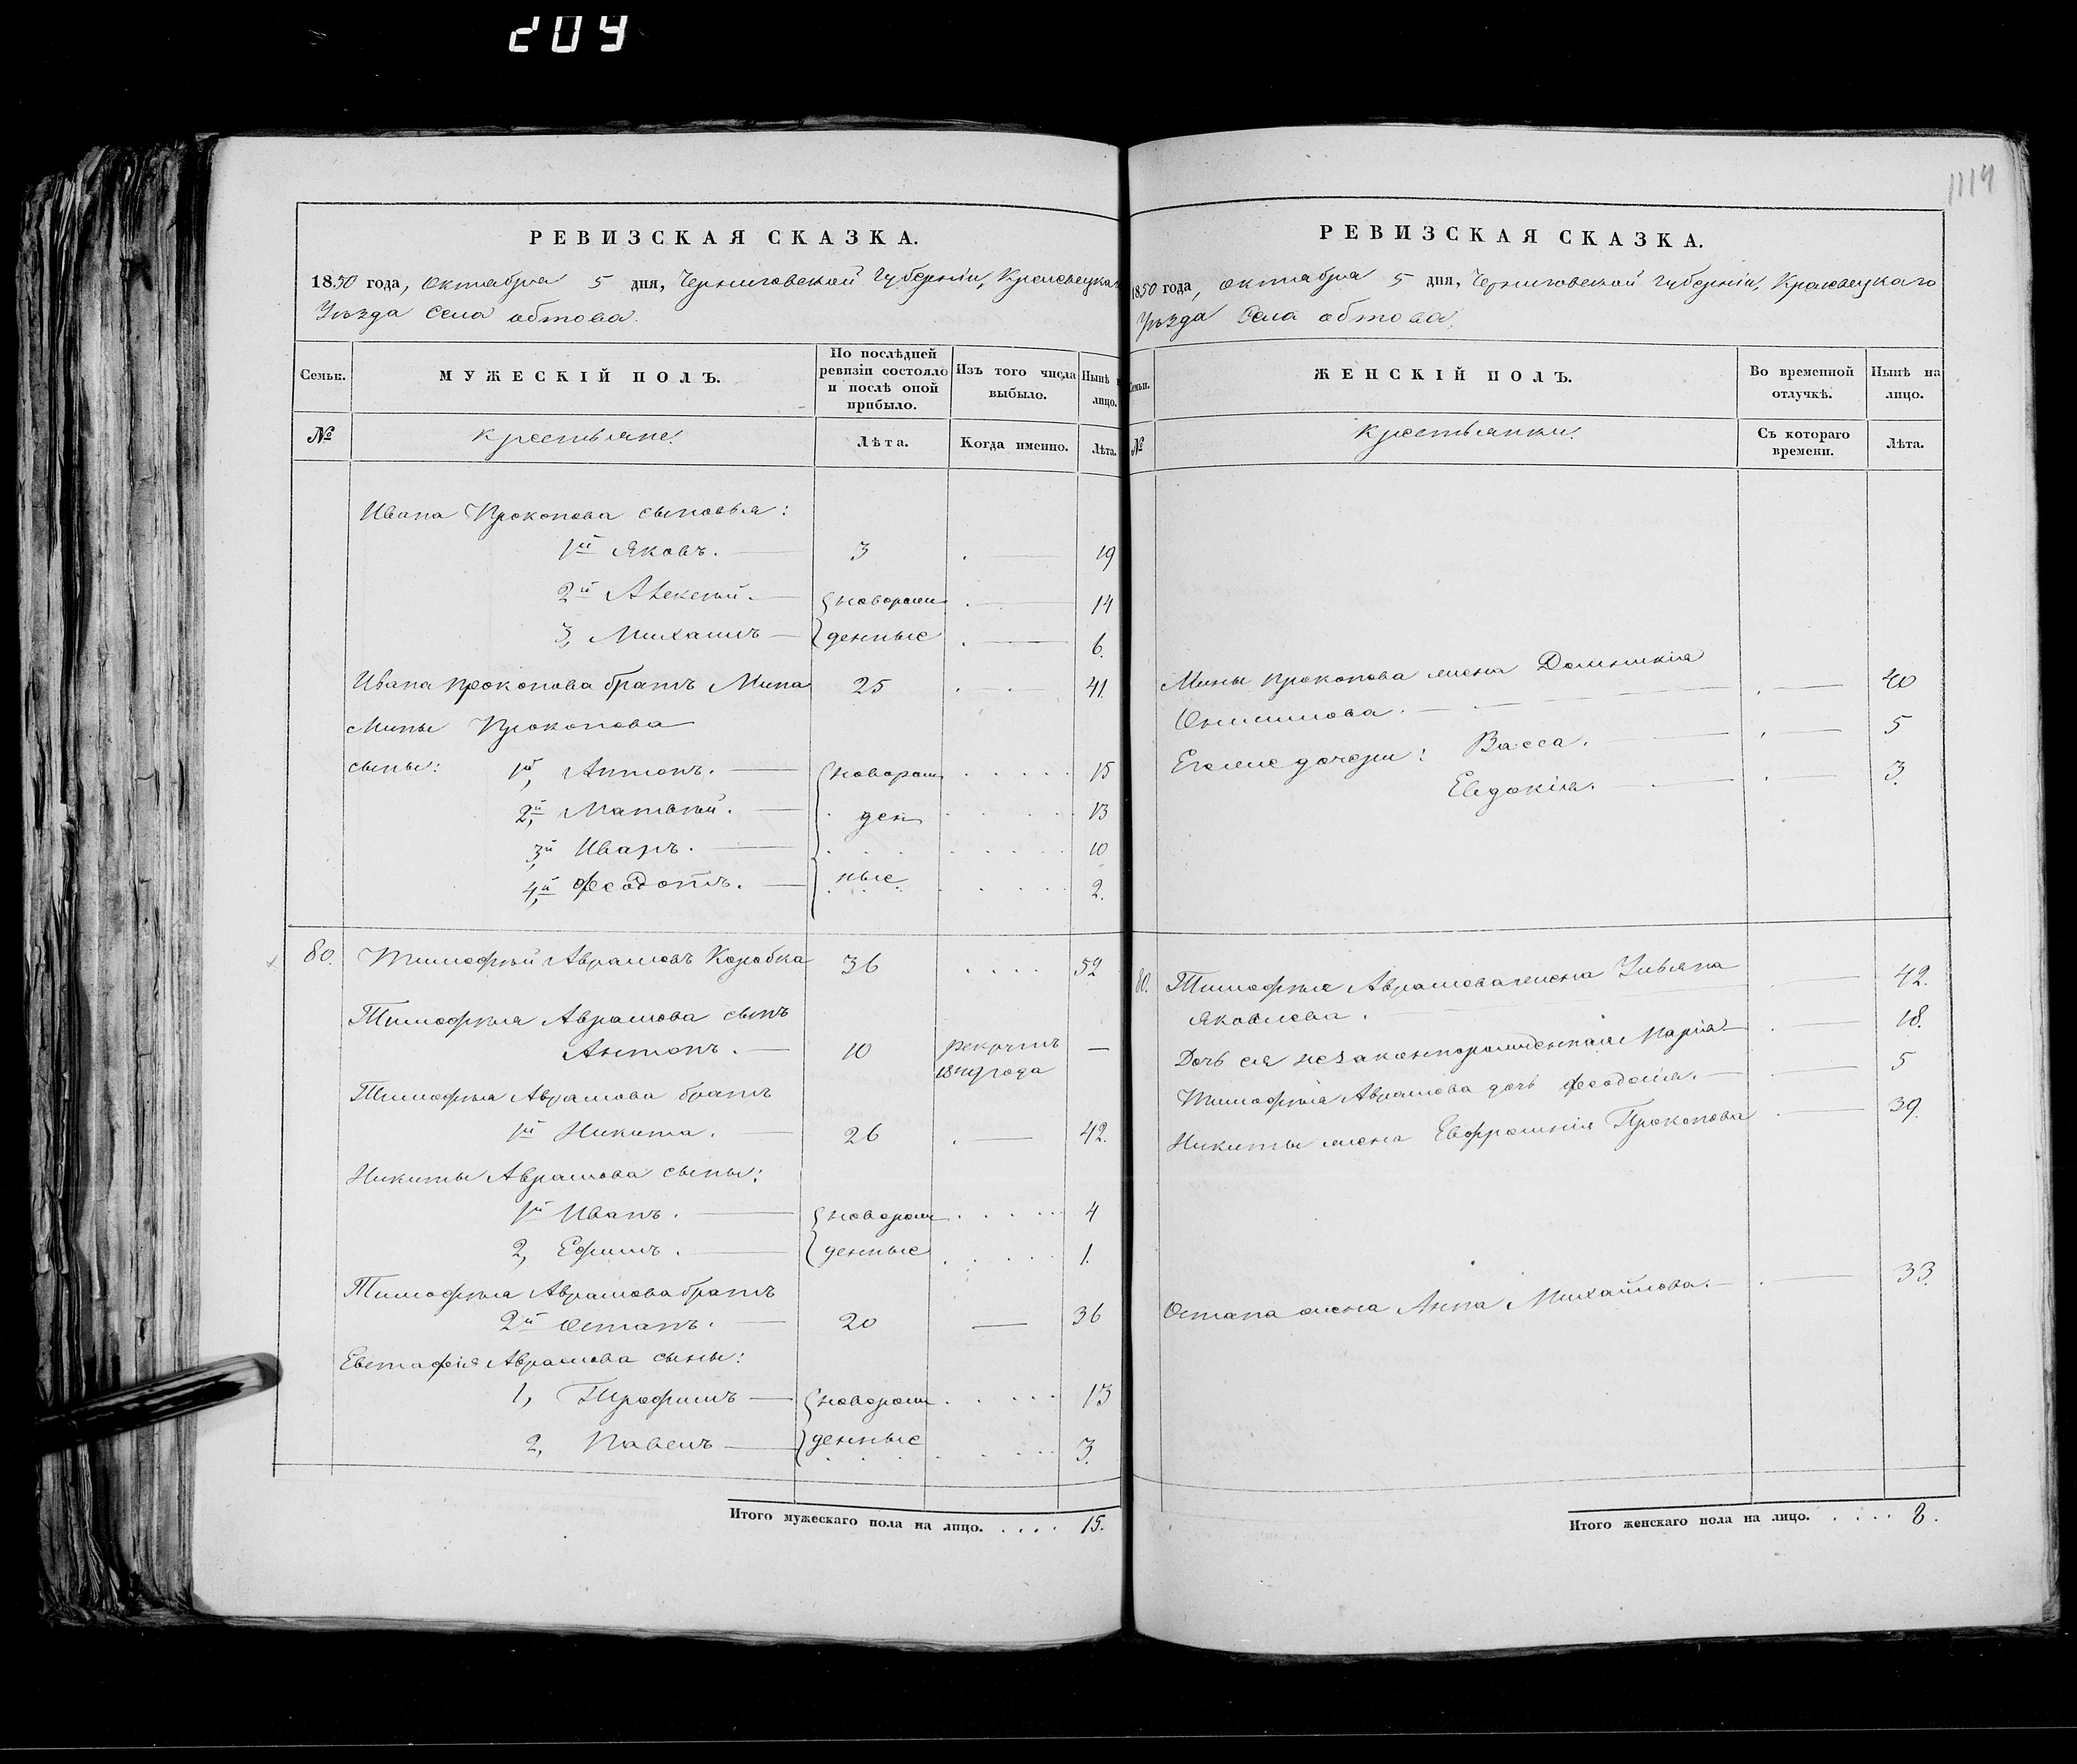 209
1114
РЕВИЗСКАЯ СКАЗКА.
1850 года, октября 5 дня, Черниговской Губерніи, Кролевецкаго
Уѣзда Села обтова.
Семьи.
МУЖЕСКІЙ ПОЛЪ.
По послѣдней ревизіи состояло и послѣ оной прибыло.
Изъ того числа выбыло.
Нынѣ на лицо.
№
крестьяне.
Лѣта.
Когда именно.
Лѣта.
Ивана Прокопова сыновья:
1й Яковъ. 3 19
2й Алексѣй. новорож 14
3, Михаилъ денные 6.
Ивана прокопова братъ Мина 25 41.
Мины Прокопова
сыны: 1й, Антонъ. новорож 15
2й, Матвѣй. ден 13
3й Иванъ. 10
4й Феодотъ. ные 2.
80. Тимофѣй Аврамовъ Коробка 36 52
Тимофѣя Аврамова сынъ
Антонъ. 10 рекрутъ —
года
Тимофѣя Аврамова братъ
1й Никита. 26 42.
Никиты Аврамова сыны:
1й Иванъ. новорож 4
2, Ефимъ. денные 1.
Тимофѣя Аврамова братъ
2й Остапъ. 20 36
Евстафія Аврамова сыны:
1, Трофимъ новорож 13
2, Павелъ денные 3.
Итого мужескаго пола на лицо. . . . . 15.
РЕВИЗСКАЯ СКАЗКА.
1850 года, октября 5 дня, Черниговской губерніи, Кролевецкаго
Уѣзда Села обтова,
Семьи.
ЖЕНСКІЙ ПОЛЪ.
Во временной отлучкѣ.
Нынѣ на лицо.
№
крестьянки.
Съ котораго времени.
Лѣта.
Мины прокопова жена Домникія
Онисимова. 40
Егоже дочери: Васса. 5
Евдокія. 3.
80. Тимофѣя Аврамова жена Ульяна
Яковлева. 42.
Дочь ея незаконнорожденная Марія 18.
Тимофѣя Аврамова дочь Феодосія. 5
Никиты жена Евфросинія Прокопова 39.
Остапа жена Анна Михайлова. 33.
Итого женскаго пола на лицо. . . . . 8.